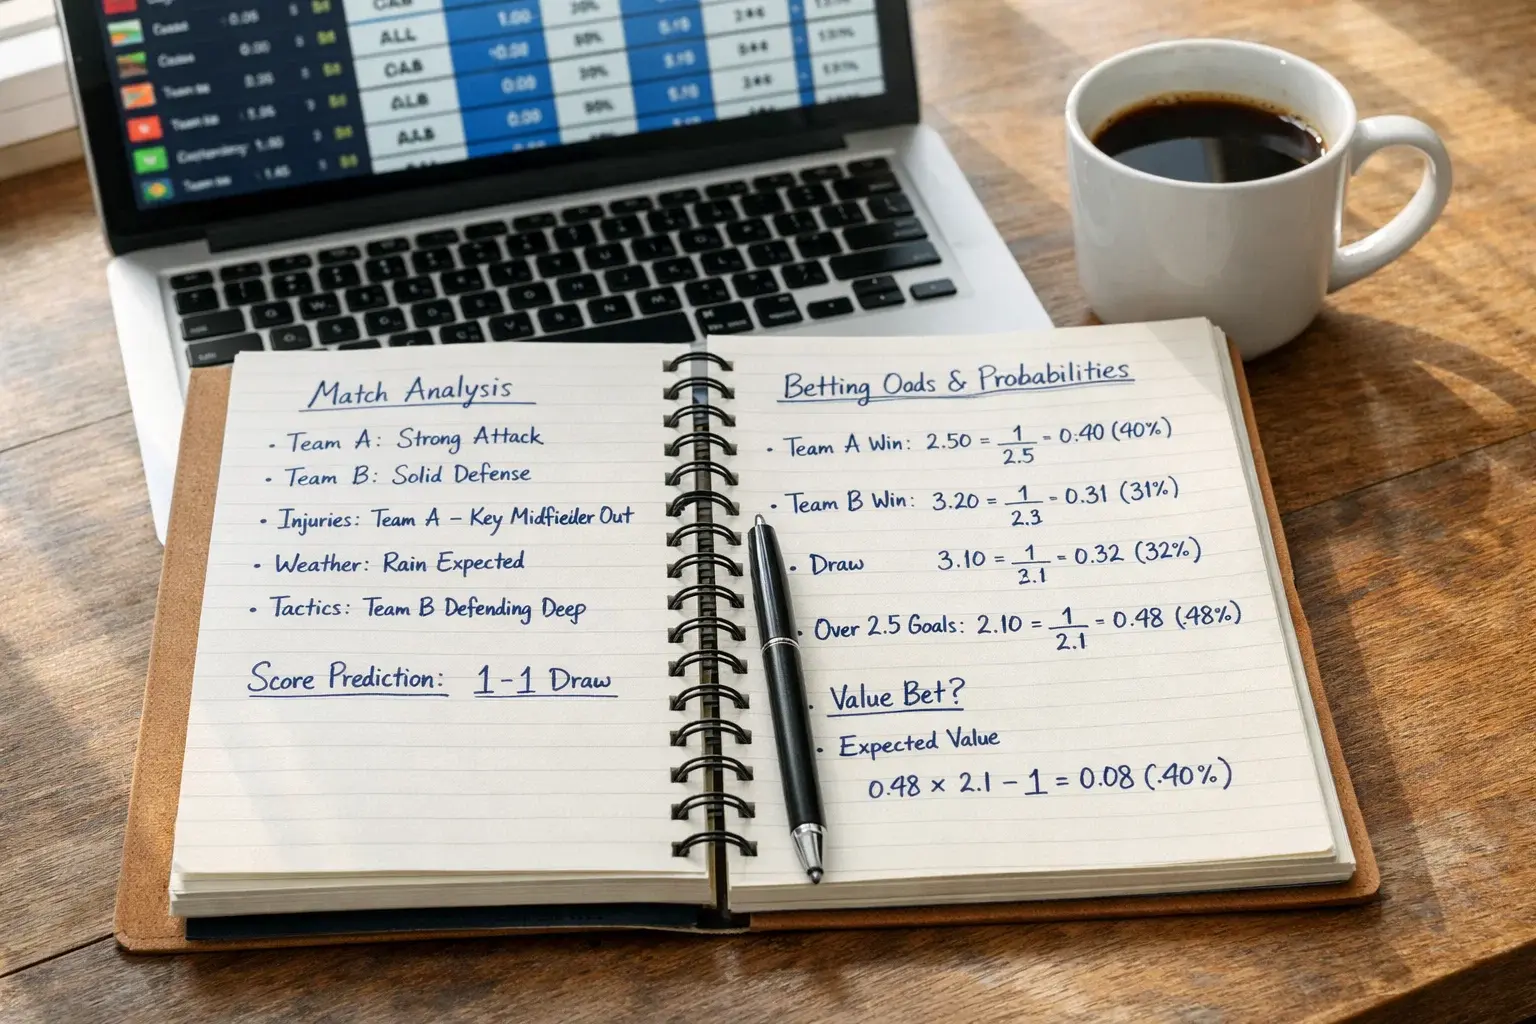 CAB
1.00
30%
ALL
-0.00
80%
5.10
CAB
0.00
30%
5.10
ALB
0.00
80%
5.10
AAB
0.00
Match Analysis
• Team A: Strong Attack
• Team B: Solid Defense
• Injuries: Team A – Key Midfieder Out
• Weather: Rain Expected
• Tactics: Team B Defending Deep
Score Prediction: 1-1 Draw
Betting Oads & Probabilities
• Team A Win: 2.50 = 1/2.5 = 0.40 (40%)
• Team B Win: 3.20 = 1/2.3 = 0.31 (31%)
• Draw 3.10 = 1/2.1 = 0.32 (32%)
• Over 2.5 Goals: 2.10 = 1/2.1 = 0.48 (.48%)
• Value Bet?
• Expected Value
0.48 × 2.1 – 1 = 0.08 (.40%)